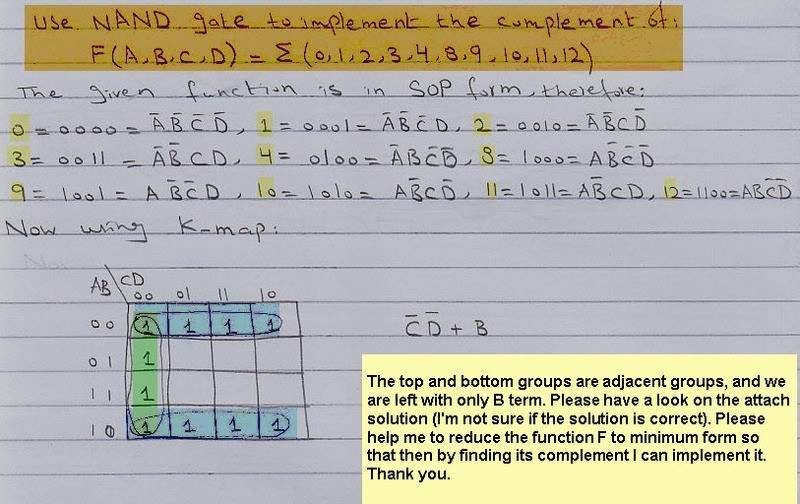 USE NAND gate to implement the complement of:
F(A,B,C,D) = Σ (0,1,2,3,4,8,9,10,11,12)
The given function is in SOP form, therefore:
0 = 0000 = A̅ B̅ C̅ D̅, 1 = 0001 = A̅ B̅ C̅ D, 2 = 0010 = A̅ B̅ C D̅
3 = 0011 = A̅ B̅ C D, 4 = 0100 = A̅ B C̅ D̅, 8 = 1000 = A B̅ C̅ D̅
9 = 1001 = A B̅ C̅ D, 10 = 1010 = A B̅ C D̅, 11 = 1011 = A B̅ C D, 12 = 1100 = A B C̅ D̅
Now using K-map:
AB \ CD
00 01 11 10
00 1 1 1 1
01 1
11 1
10 1 1 1 1
C̅ D̅ + B
The top and bottom groups are adjacent groups, and we
are left with only B term. Please have a look on the attach
solution (I'm not sure if the solution is correct). Please
help me to reduce the function F to minimum form so
that then by finding its complement I can implement it.
Thank you.